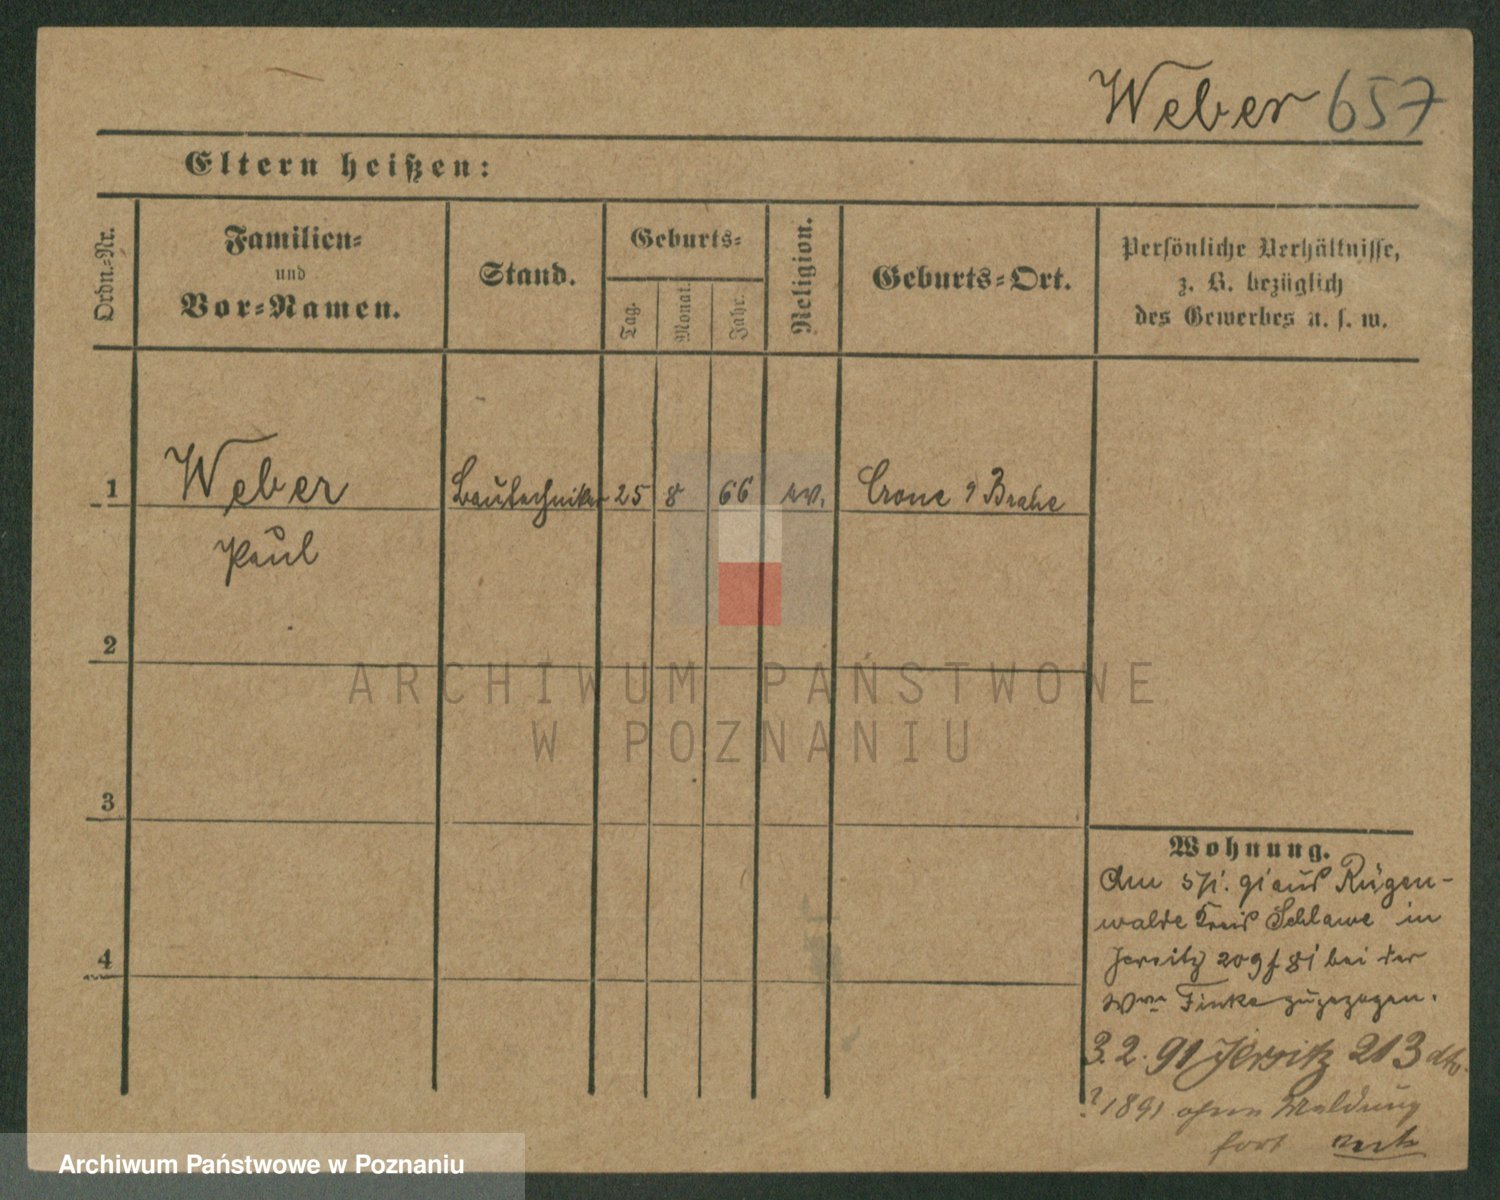 Weber 657
Eltern heißen:
Ordn.-Nr.
Familien-
und
Vor-Namen.
Stand.
Geburts-
Tag.
Monat.
Jahr.
Religion.
Geburts-Ort.
Persönliche Verhältnisse,
z. B. bezüglich
des Gewerbes u. s. w.
1 Weber Bautechniker 25 8 66 ev. Crone a/ Brahe
Paul
2
ARCHIWUM PAŃSTWOWE
W POZNANIU
3
Wohnung.
Am 5/1. 91 aus Rügen-
walde Kreis Schlawe in
4
Jersitz 209 f 81 bei der
Wwe Finke zugezogen.
3. 2. 91 Jersitz 213
1891 ohne Meldung
fort
Archiwum Państwowe w Poznaniu